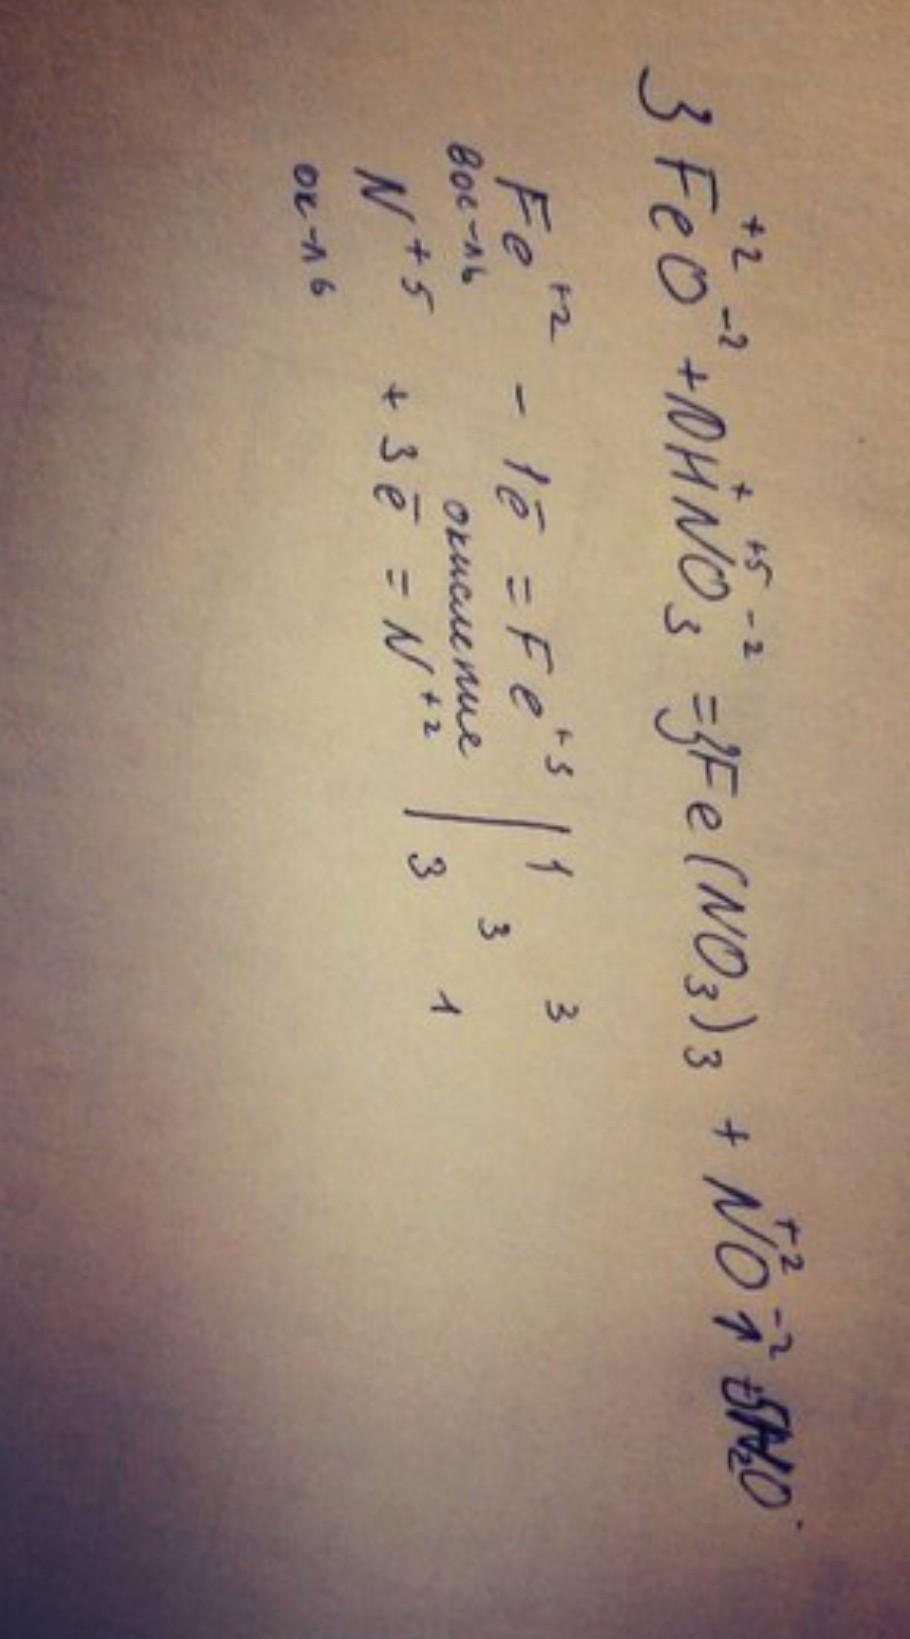 3Fe⁺²O⁻² + 10H⁺N⁺⁵O₃⁻² = 3Fe(NO₃)₃ + N⁺²O⁻²↑ + 5H₂O
Fe⁺² - 1ē = Fe⁺³ | 1 3
вос-ль окисление 3
N⁺⁵ + 3ē = N⁺² | 3 1
ок-ль